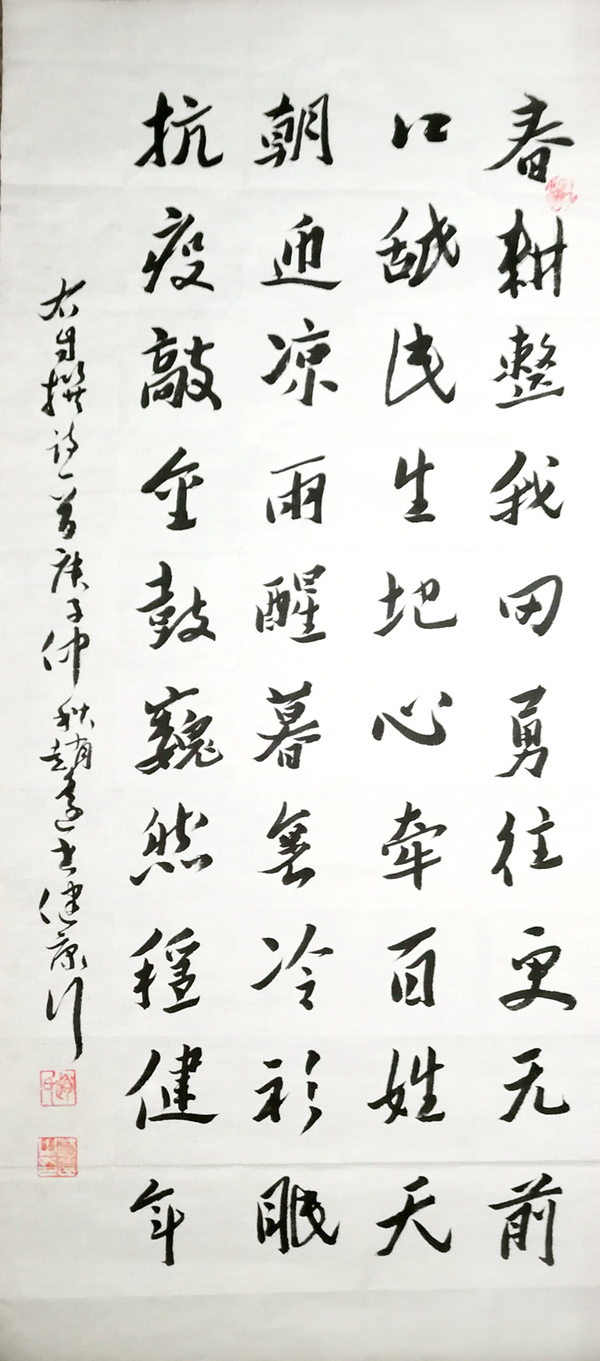 春耕整我田勇往更无前
口舐民生地心牵百姓天
朝迎凉雨醒暮冷衫眠
抗疫敲金鼓巍然穩健年
右自撰诗一首庚子仲秋趙健康行